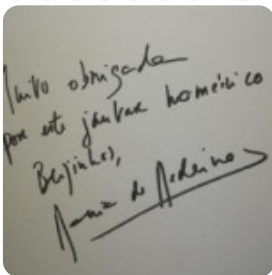 Muito obrigada
por este jantar homérico
Beijinhos,
Maria de Medeiros